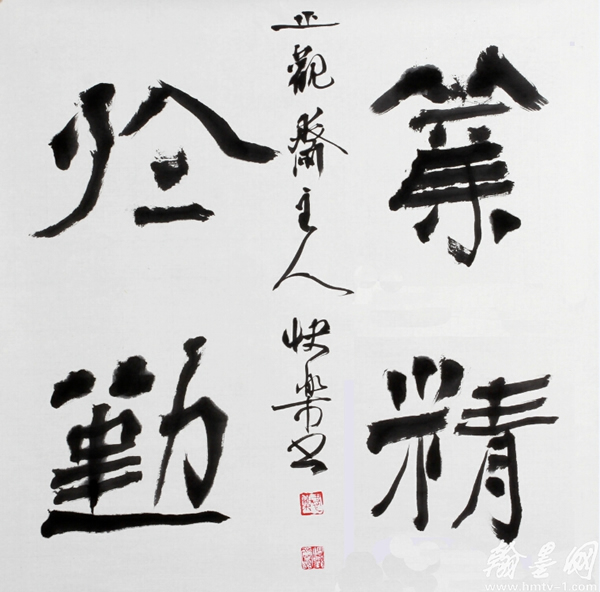 業精
於勤
正觀斋主人 快楽书
翰墨网
www.hmtv-1.com